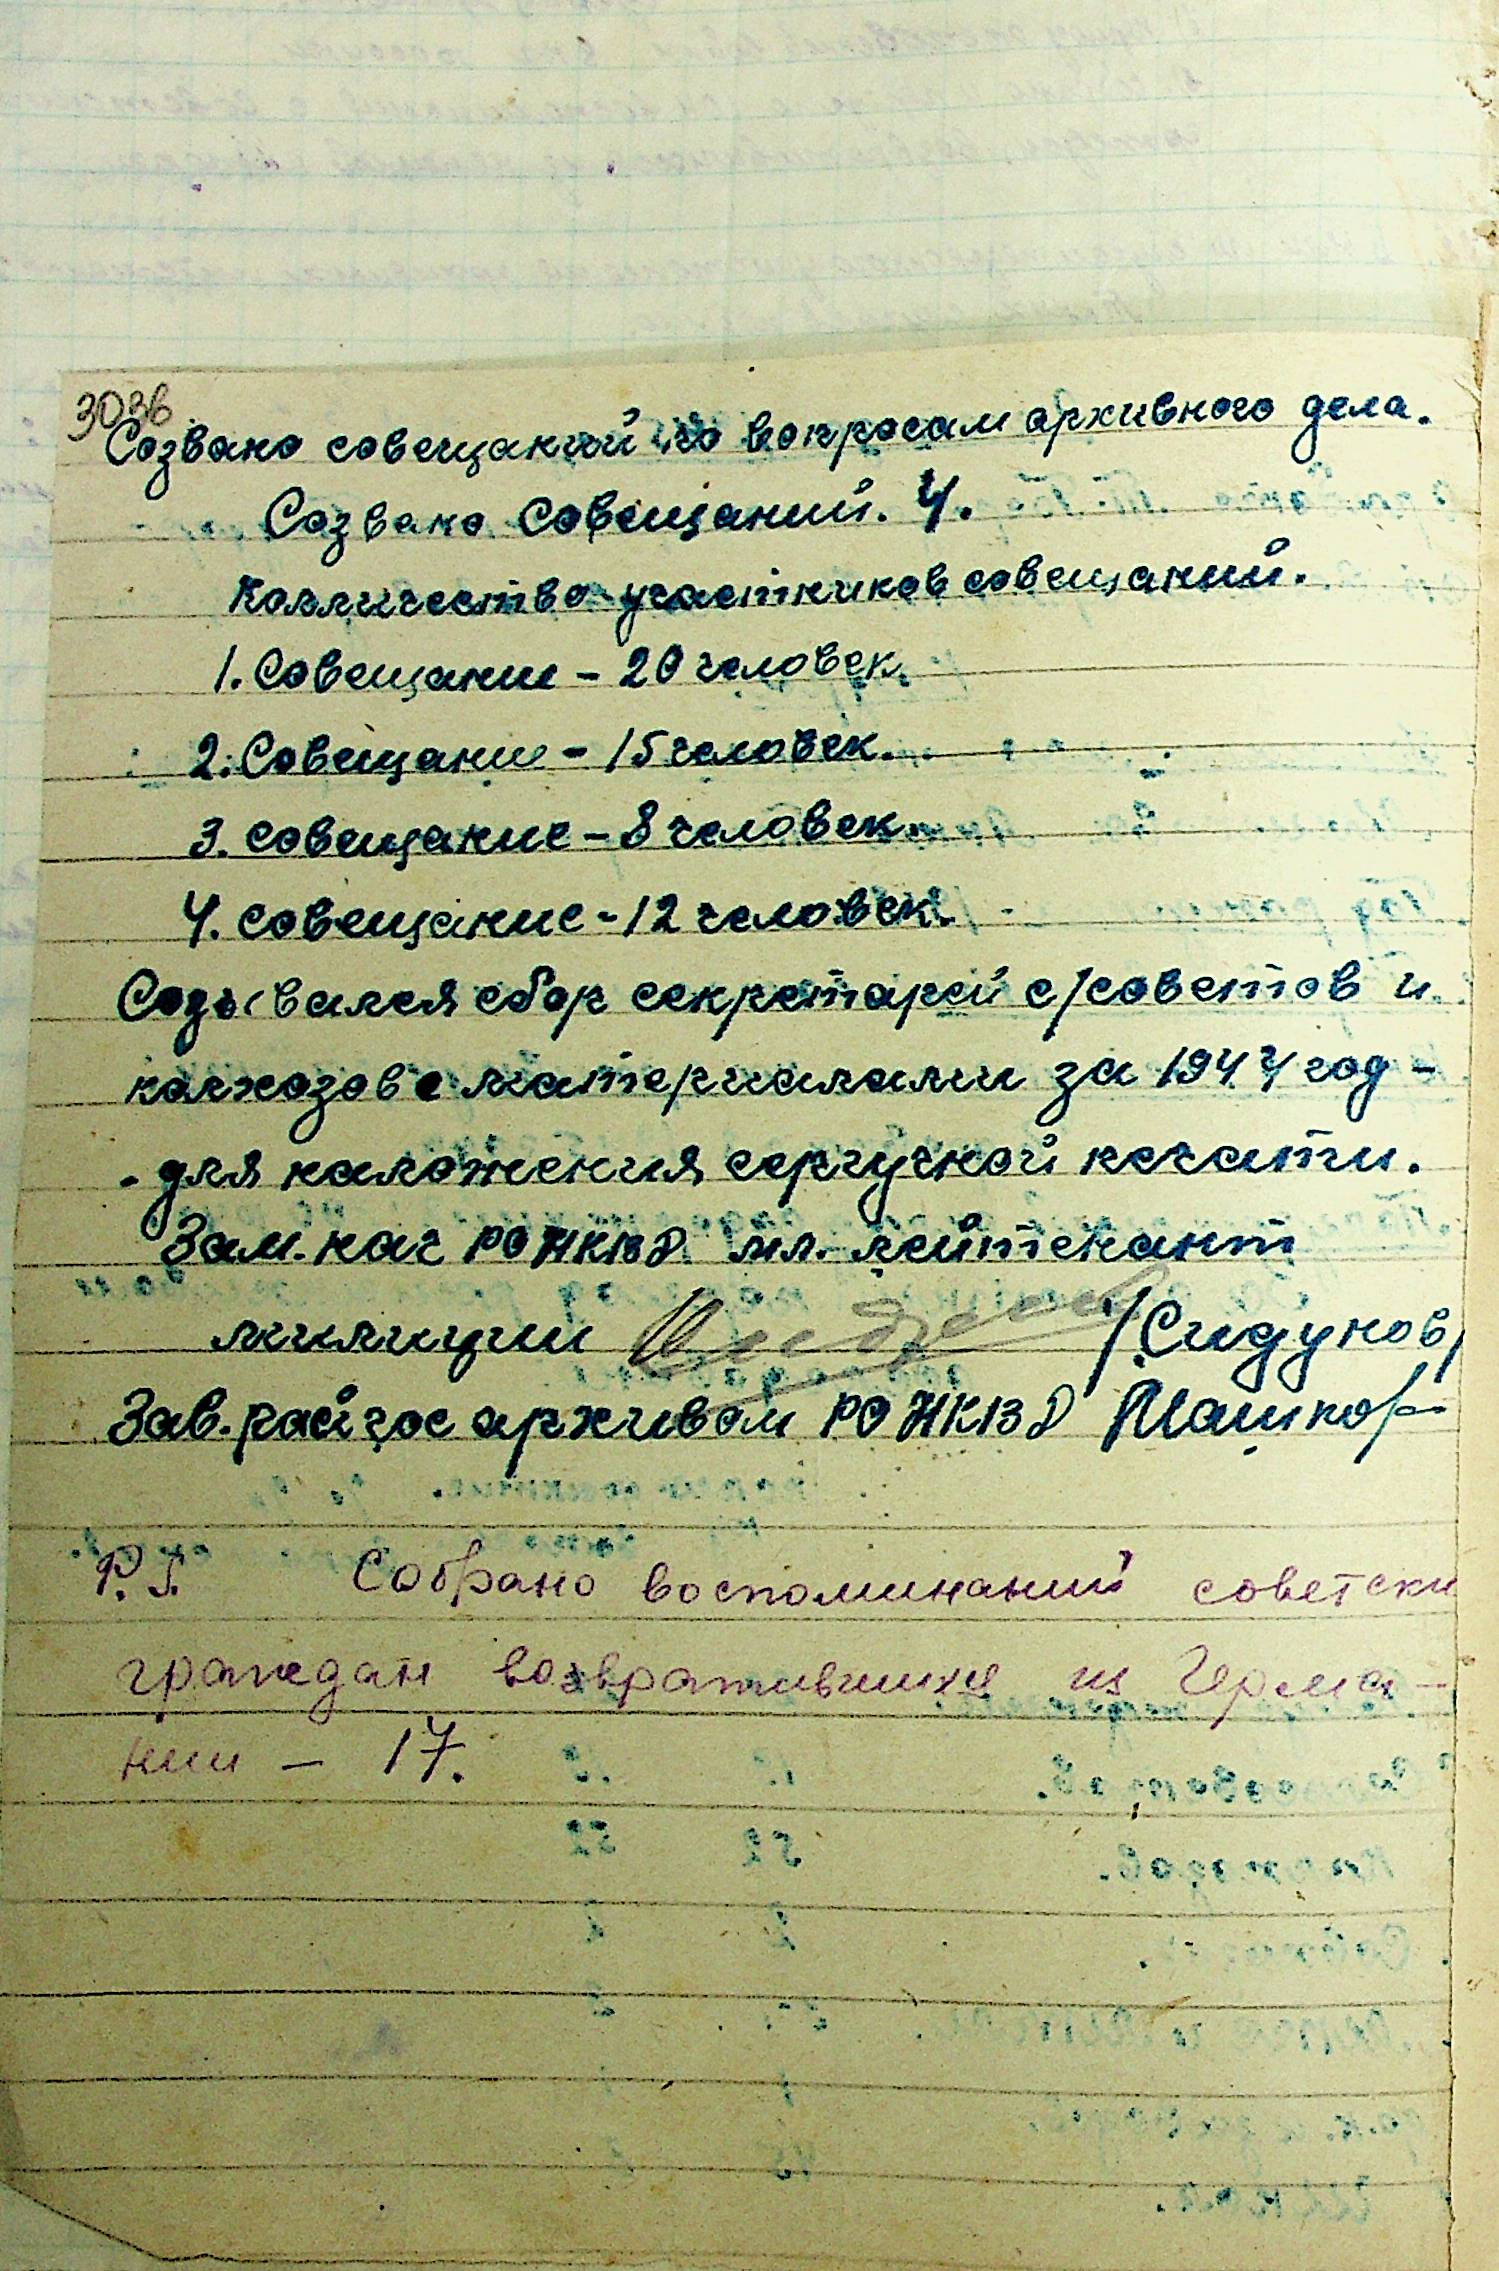 303в
Созвано совещаний по вопросам архивного дела.
Созвано Совещаний. 4.
Колличество участников совещаний.
1. Совещание - 20 человек.
2. Совещание - 15 человек.
3. Совещание - 8 человек.
4. Совещание - 12 человек.
Созывался сбор секретарей с/советов и
колхозов с материалами за 1944 год -
- для наложения сергучной печати.
Зам. нач РО НКВД мл. лейтенант
милиции /Сидунов/
Зав. райгосархивом РО НКВД
P.S. Собрано воспоминаний советски
граждан возвратившихся из Герма-
нии - 17.